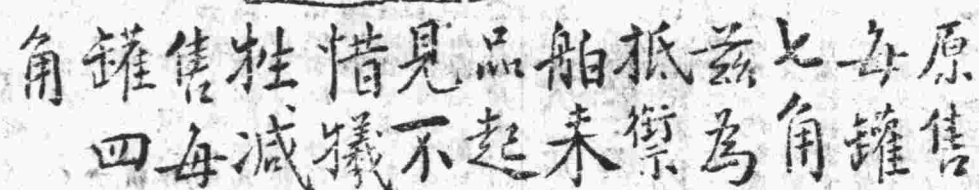 原售
每罐
七角
兹為
抵禦
舶来
品起
見不
惜犧
牲減
售每
罐四
角